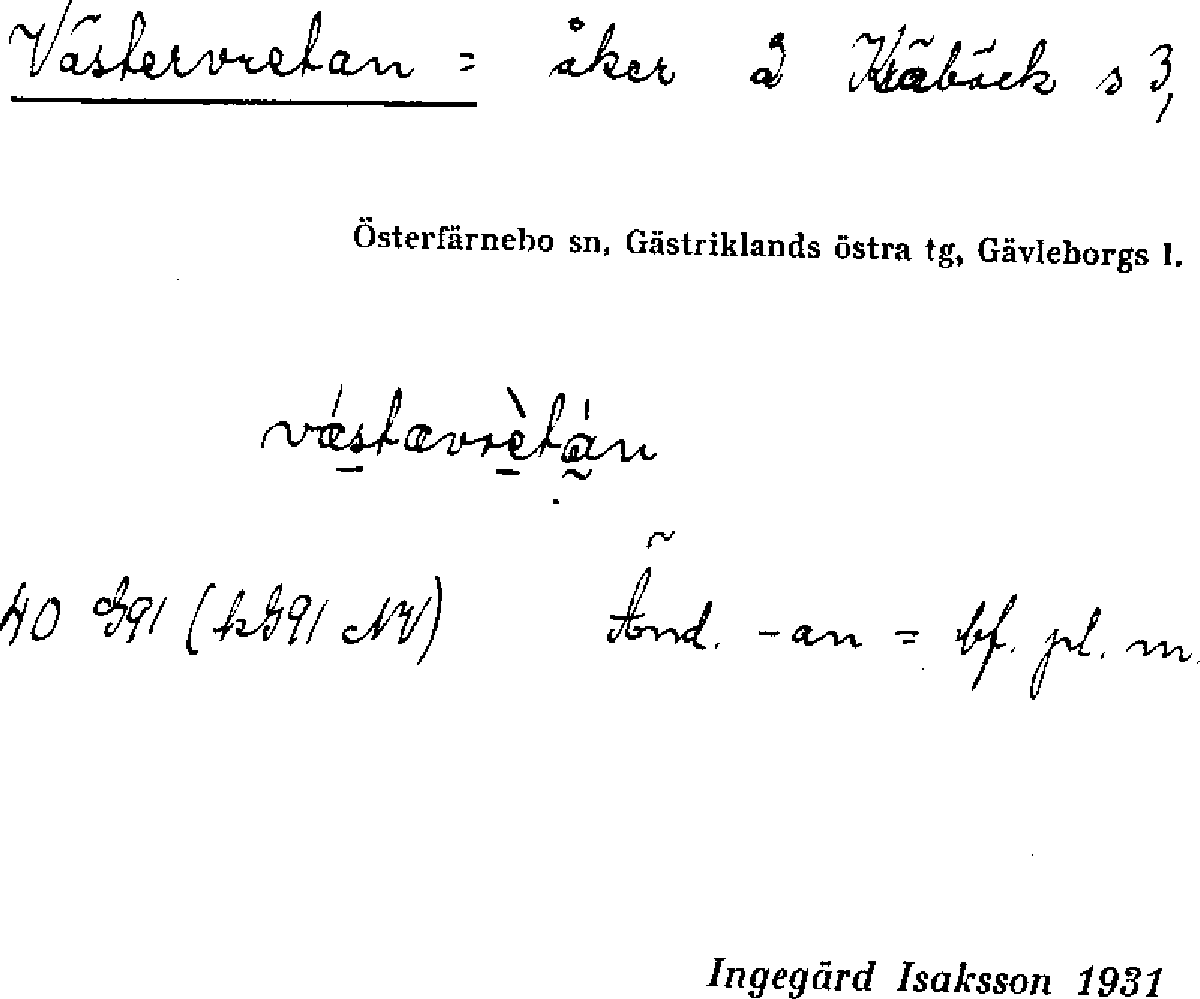 Västervretan = åker å Kräbäck s 3,
Österfärnebo sn, Gästriklands östra tg, Gävleborgs l.
västævretan
40 I91 (kI91 NV) Änd. -an = bf. pl. m.
Ingegärd Isaksson 1931